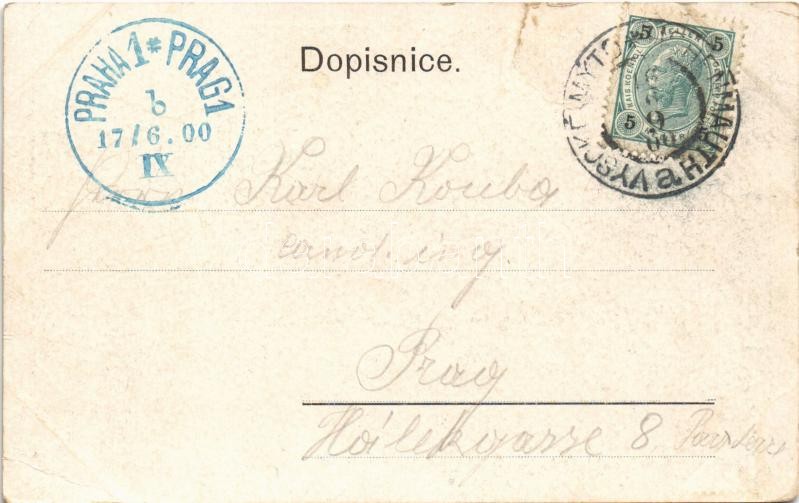 PRAHA 1 * PRAG 1
b
17/6.00
IX
Dopisnice.
5 5
5
VYSOKÉ MÝTO
HOHENMAUTH
9
00
Herrn Karl Kouba
cand. ing.
Prag
Hálekgasse 8